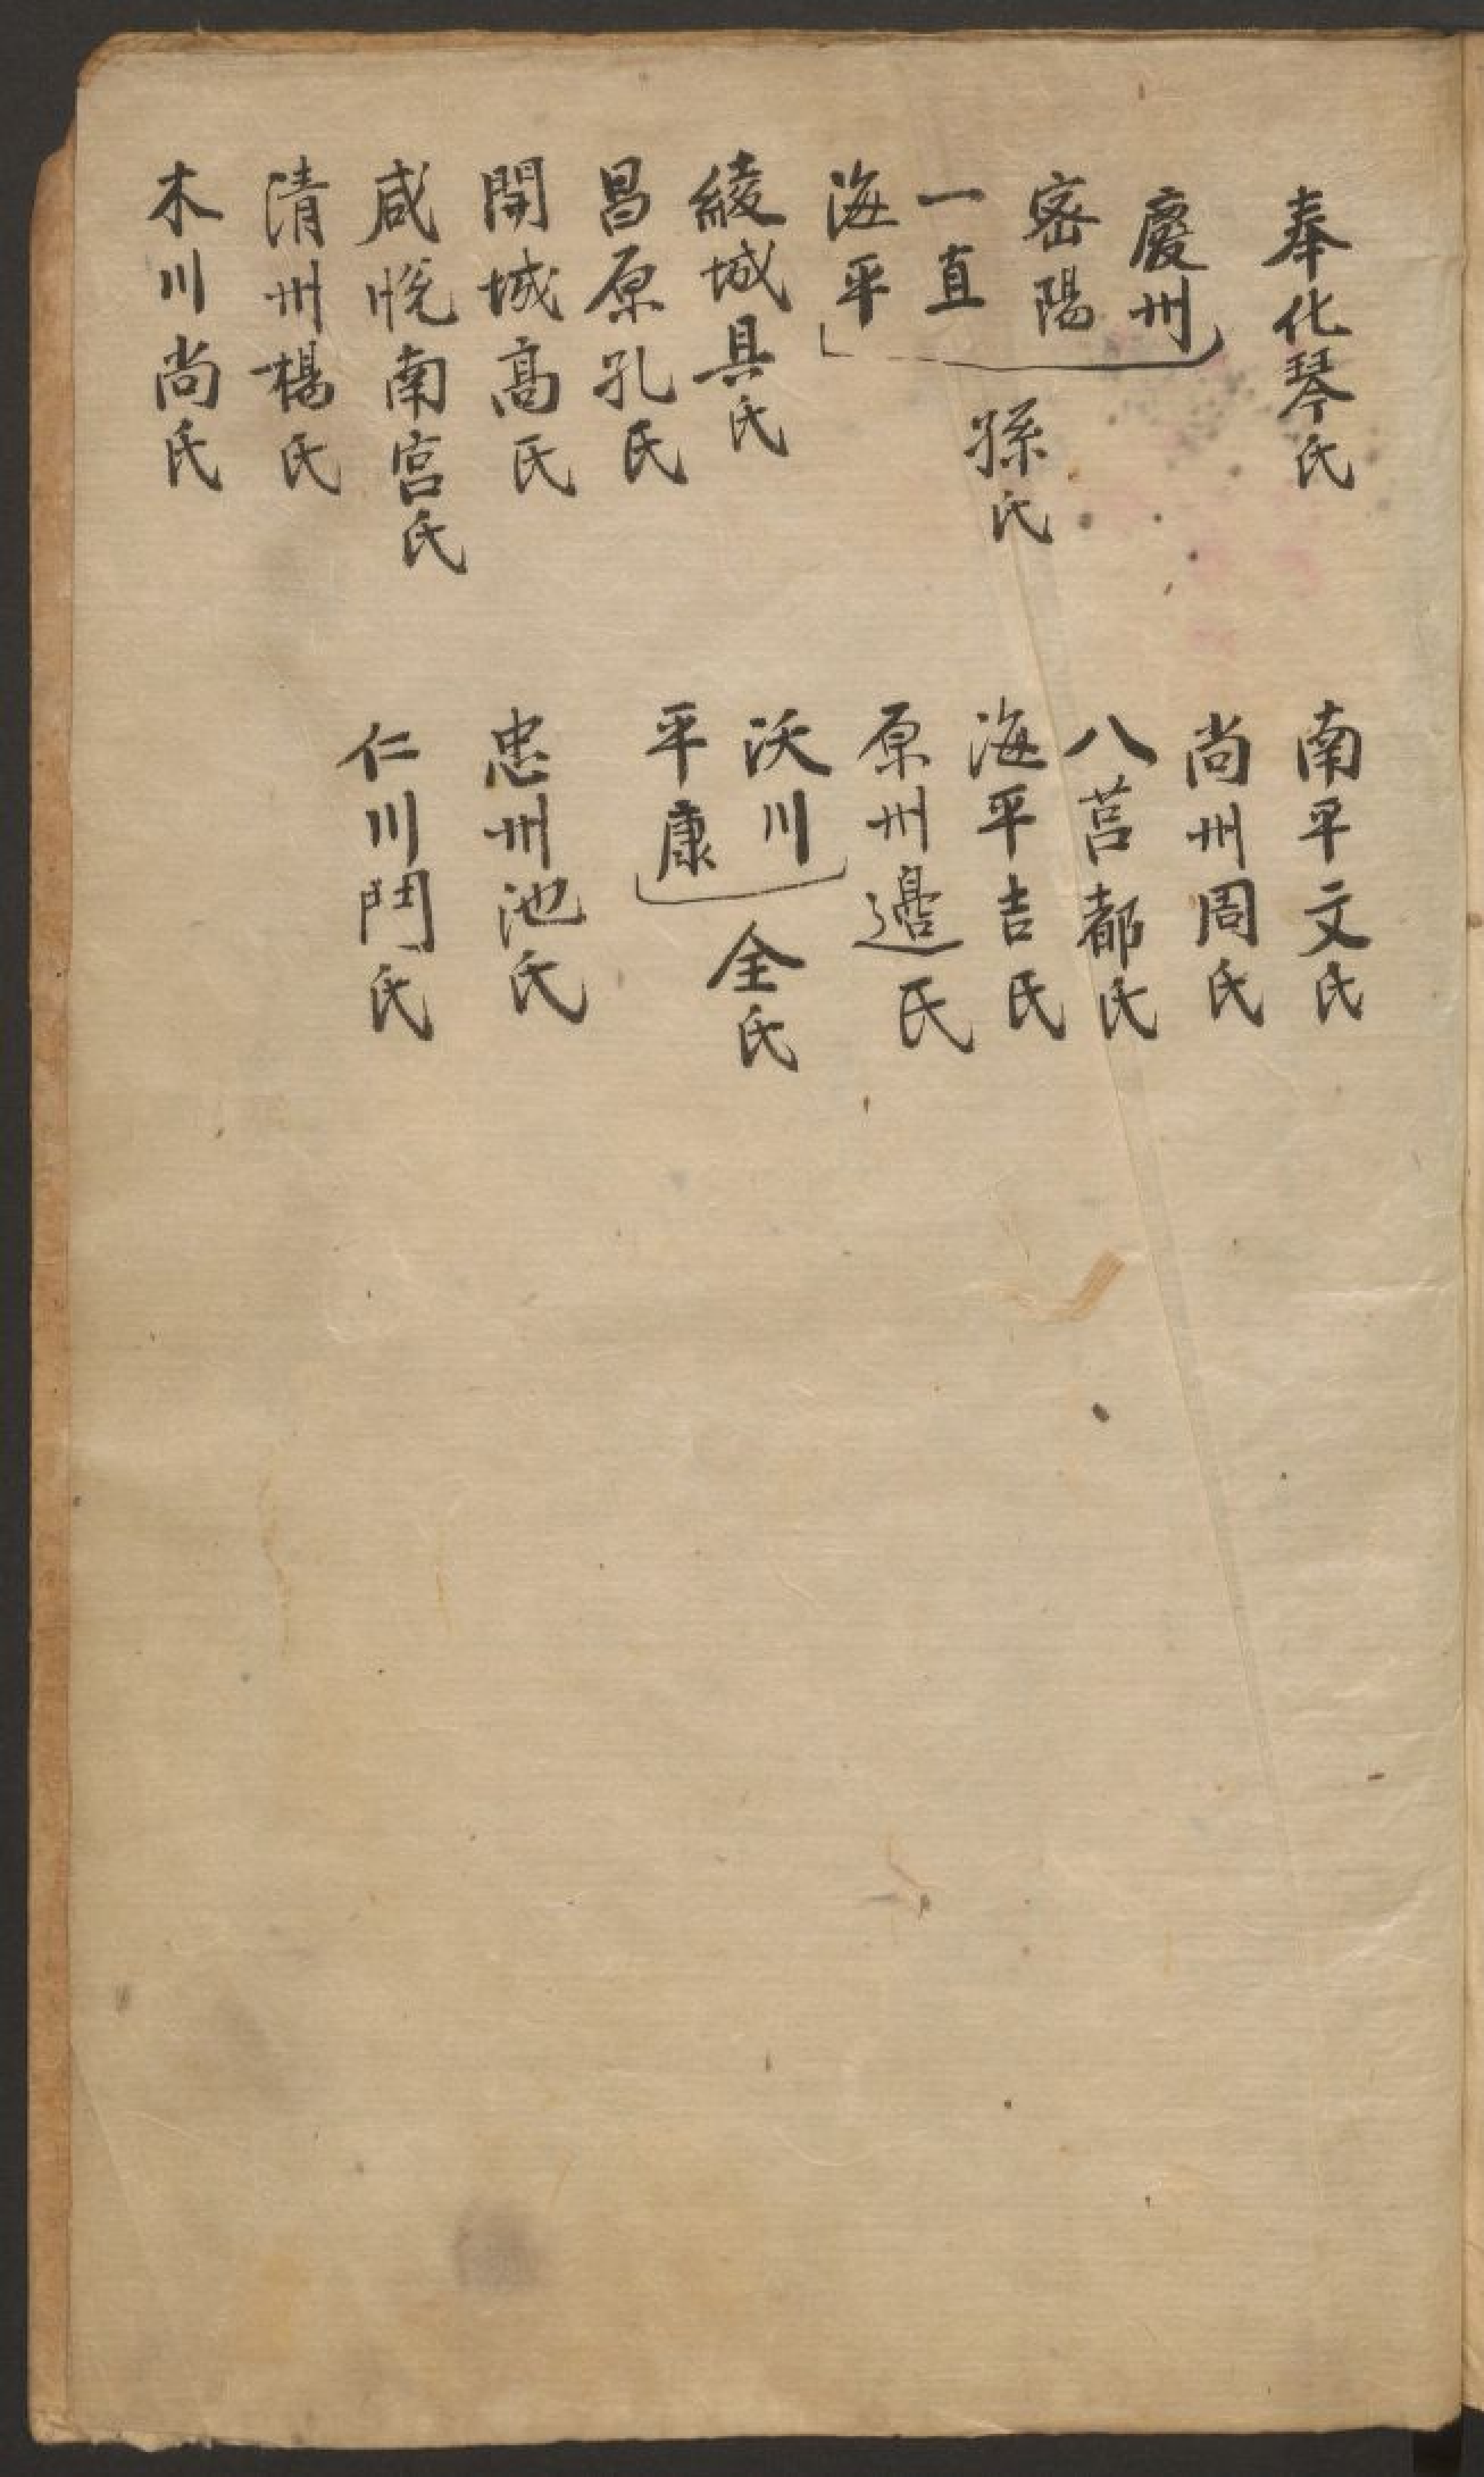 奉化琴氏
慶州
密陽
一直
海平
孫氏
綾城具氏
昌原孔氏
開城髙氏
咸悅南宮氏
清州楊氏
木川尚氏
南平文氏
尚州周氏
八莒都氏
海平吉氏
原州邉氏
沃川
平康
全氏
忠州池氏
仁川門氏